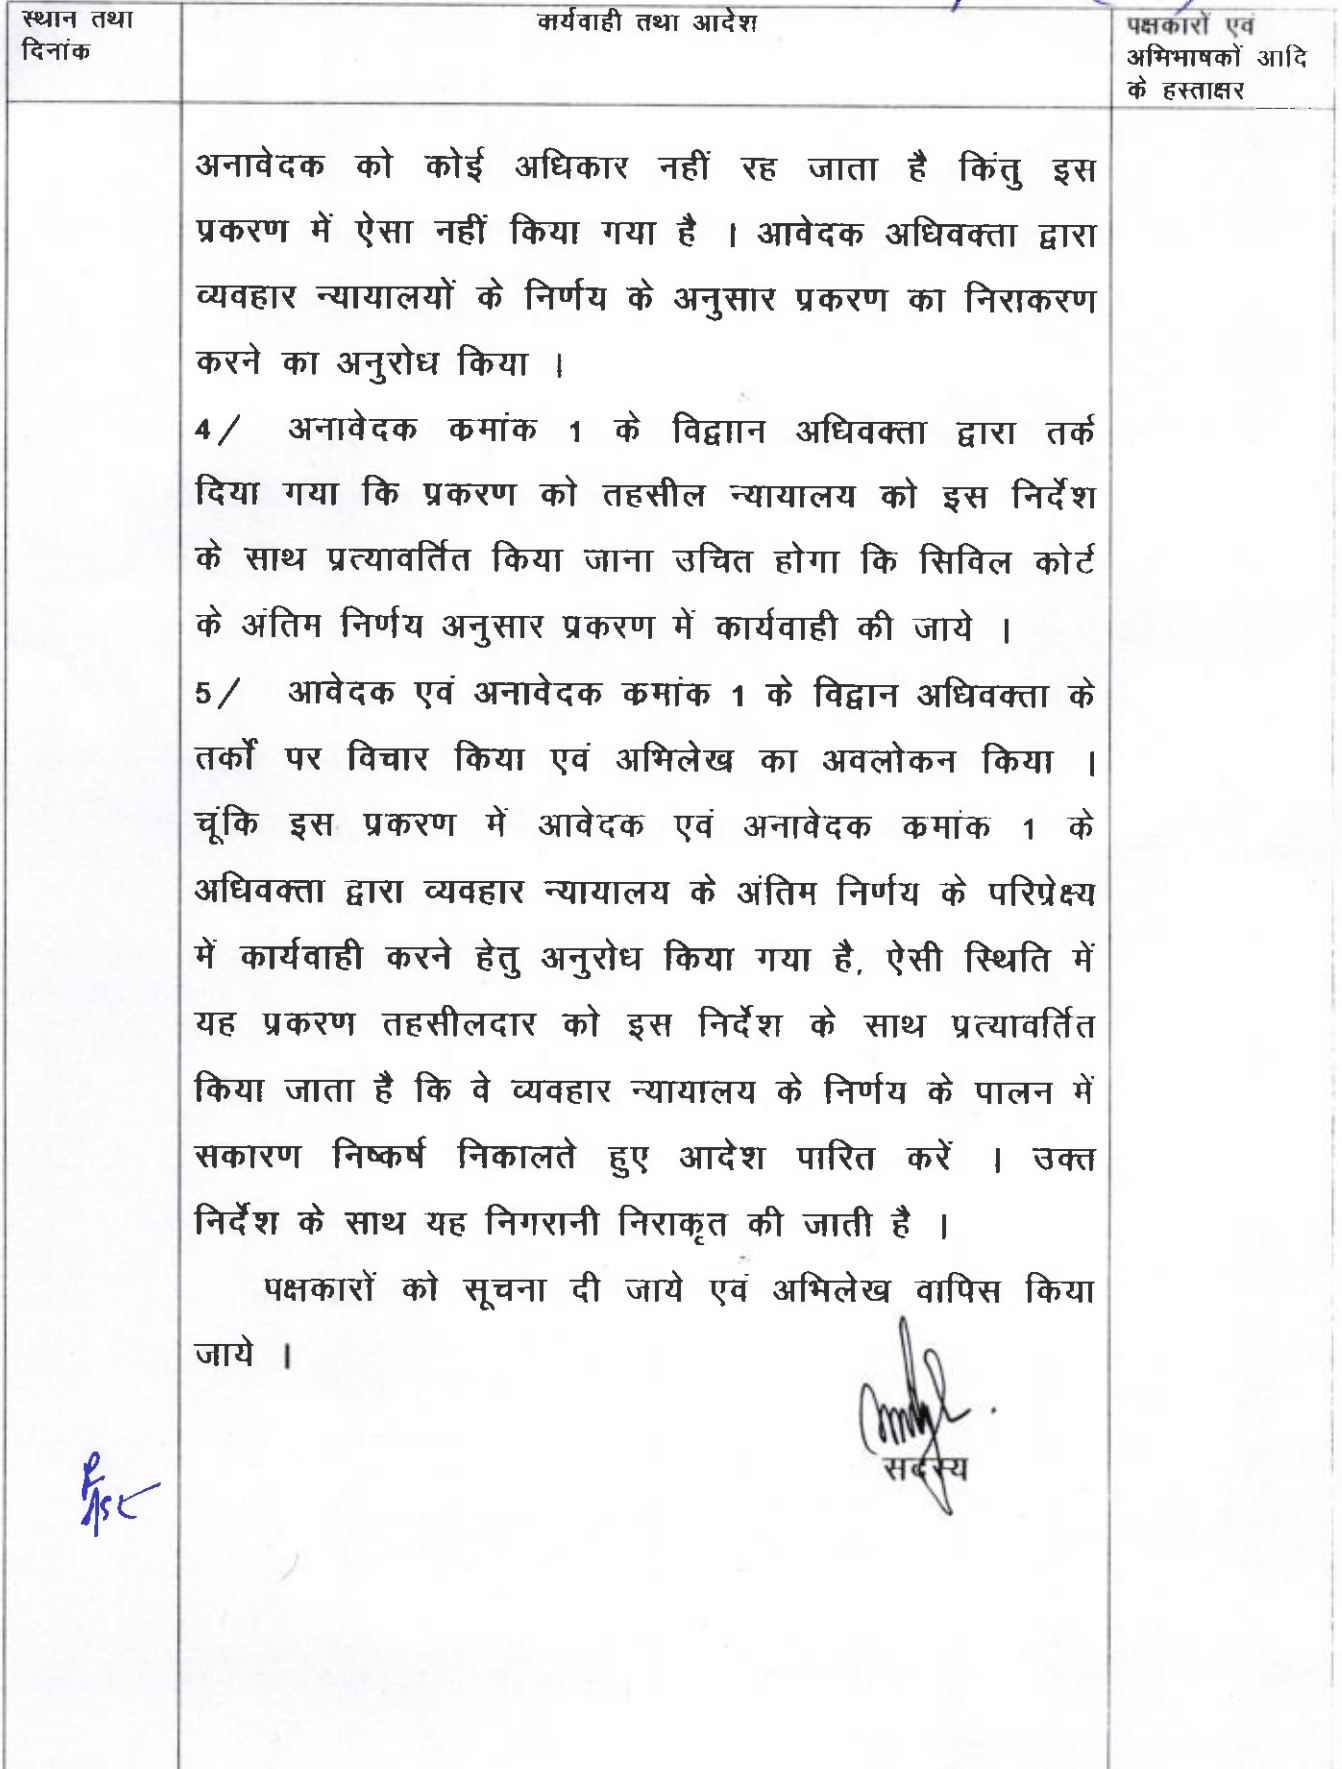 स्थान तथा
दिनांक
कार्यवाही तथा आदेश
पक्षकारों एवं
अभिभाषकों आदि
के हस्ताक्षर
अनावेदक को कोई अधिकार नहीं रह जाता है किंतु इस
प्रकरण में ऐसा नहीं किया गया है । आवेदक अधिवक्ता द्वारा
व्यवहार न्यायालयों के निर्णय के अनुसार प्रकरण का निराकरण
करने का अनुरोध किया ।
4/ अनावेदक कमांक 1 के विद्वाान अधिवक्ता द्वारा तर्क
दिया गया कि प्रकरण को तहसील न्यायालय को इस निर्देश
के साथ प्रत्यावर्तित किया जाना उचित होगा कि सिविल कोर्ट
के अंतिम निर्णय अनुसार प्रकरण में कार्यवाही की जाये ।
5/ आवेदक एवं अनावेदक कमांक 1 के विद्वान अधिवक्ता के
तर्कों पर विचार किया एवं अभिलेख का अवलोकन किया ।
चूंकि इस प्रकरण में आवेदक एवं अनावेदक कमांक 1 के
अधिवक्ता द्वारा व्यवहार न्यायालय के अंतिम निर्णय के परिप्रेक्ष्य
में कार्यवाही करने हेतु अनुरोध किया गया है, ऐसी स्थिति में
यह प्रकरण तहसीलदार को इस निर्देश के साथ प्रत्यावर्तित
किया जाता है कि वे व्यवहार न्यायालय के निर्णय के पालन में
सकारण निष्कर्ष निकालते हुए आदेश पारित करें । उक्त
निर्देश के साथ यह निगरानी निराकृत की जाती है ।
पक्षकारों को सूचना दी जाये एवं अभिलेख वापिस किया
जाये ।
सदस्य